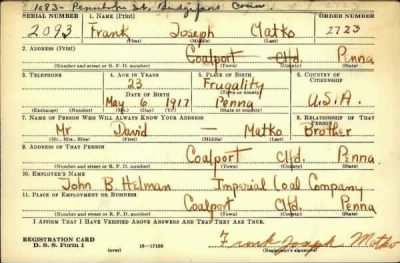 1083- Pennhope St. Bridgeport Conn.
SERIAL NUMBER 1. NAME (Print) ORDER NUMBER
2093 Frank Joseph Matko 2723
(First) (Middle) (Last)
2. ADDRESS (Print)
Coalport Clfd. Penna
(Number and street or R. F. D. number) (Town) (County) (State)
3. TELEPHONE 4. AGE IN YEARS 5. PLACE OF BIRTH 6. COUNTRY OF CITIZENSHIP
23 Frugality
DATE OF BIRTH (Town or county)
May 6 1917 Penna U.S.A.
(Exchange) (Number) (Mo.) (Day) (Yr.) (State or country)
7. NAME OF PERSON WHO WILL ALWAYS KNOW YOUR ADDRESS 8. RELATIONSHIP OF THAT PERSON
Mr David — Matko Brother
(Mr., Mrs., Miss) (First) (Middle) (Last)
9. ADDRESS OF THAT PERSON
Coalport Clfd. Penna.
(Number and street or R. F. D. number) (Town) (County) (State)
10. EMPLOYER'S NAME
John B. Helman Imperial Coal Company
11. PLACE OF EMPLOYMENT OR BUSINESS
Coalport Clfd Penna
(Number and street or R. F. D. number) (Town) (County) (State)
I AFFIRM THAT I HAVE VERIFIED ABOVE ANSWERS AND THAT THEY ARE TRUE.
REGISTRATION CARD
D. S. S. Form 1 16—17105 Frank Joseph Matko
(Registrant's signature)